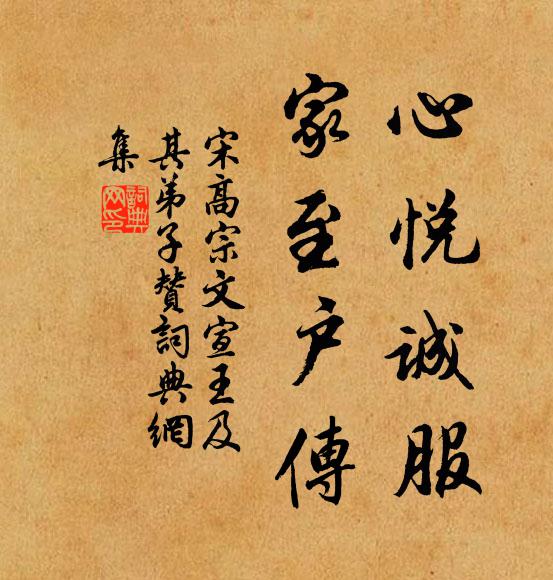 心悦誠服
家至户傳
宋高宗文宣王及
其弟子贊詞典網
集
詞典
网印